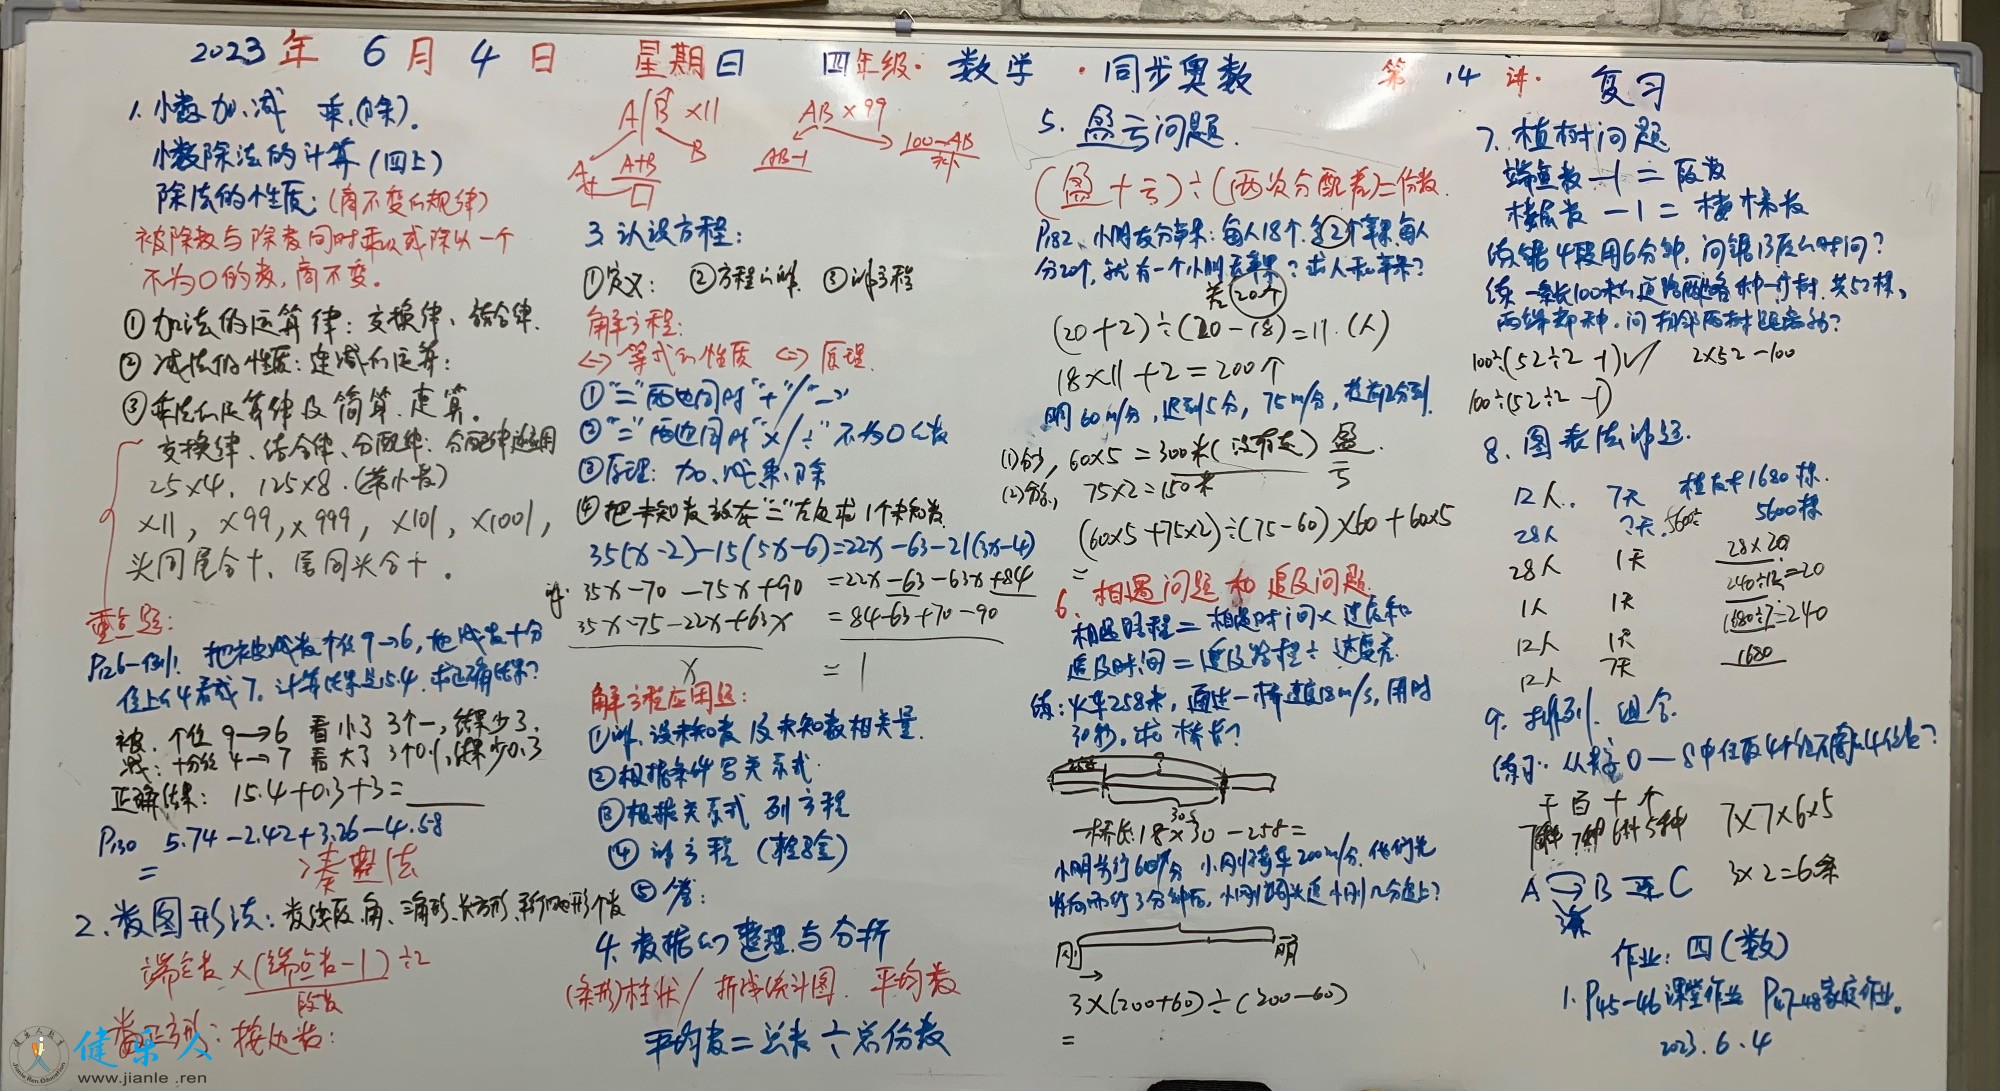 2023年 6月 4日 星期日 四年级·数学·同步奥数 第14讲·复习
1. 小数加.减 乘.(除).
小数除法的计算(四上)
除法的性质:(商不变的规律)
被除数与除数同时乘以或除以一个
不为0的数,商不变。
①加法的运算律:交换律、结合律.
②减法的性质:连减的运算:
③乘法的运算律及简算.速算。
交换律、结合律、分配律:分配律运用
25×4. 125×8.(带小数)
×11, ×99, ×999, ×101, ×1001,
头同尾合十、尾同头合十.
重点题:
P126-例1: 把被减数个位9→6, 把减数十分
位上的4看成7. 计算结果是15.4. 求正确结果?
被. 个位 9→6 看小了 3个一,结果少了3.
减: 十分位 4→7 看大了 3个0.1,结果少0.3
正确结果: 15.4+0.3+3=
P130 5.74-2.42+3.26-4.58
=
凑整法
2. 数图形法: 数线段.角、三角形.长方形.平行四边形个数
端点数×(端点数-1)÷2
段数
数正方形: 按边长:
A|B ×11
A B
A+B
A+
□
AB×99
AB-1
100-AB
3. 认识方程:
①定义: ②方程的解. ③解方程
解方程:
<->等式的性质 <=>原理.
①"="两边同时"+"/"-"
②"="两边同时"×/÷"不为0的数
③原理: 加.减.乘.除
④把未知数放在"="左边求1个未知数.
35(x-2)-15(5x-6)=22x-63-21(3x-4)
解: 35x-70-75x+90 =22x-63-63x+84
35x-75-22x+63x =84-63+70-90
x = 1
解方程应用题:
①解.设未知数及未知数相关量.
②根据条件写关系式.
③根据关系式 列方程
④解方程 (检验)
⑤答:
4. 数据的整理与分析
(条形)柱状/折线统计图. 平均数
平均数=总数÷总份数
5. 盈亏问题.
(盈+亏)÷(两次分配差)=份数.
P182. 小朋友分苹果: 每人18个.多2个苹果.每人
分20个,就有一个小朋友无苹果? 求人和苹果?
差20个
(20+2)÷(20-18)=11.(人)
18×11+2=200个
明60m/分, 迟到5分, 75m/分, 提前2分到.
(1) 60×5=300米(没有走) 盈
亏
(2) 75×2=150米
(60×5+75×2)÷(75-60)×60+60×5
=
6. 相遇问题和追及问题.
相遇路程=相遇时间×速度和
追及时间=追及路程÷速度差.
练: 火车258米, 通过一桥速度18m/s, 用时
30秒, 求桥长?
258 ?
30s
桥长: 18×30-258=
小明步行60m/分 小刚骑车200m/分. 他们先
背向而行3分钟后, 小刚调头追小明几分追上?
刚 明
3×(200+60)÷(200-60)
=
7. 植树问题
端点数-1=段数
楼层数-1=楼梯段
练 锯4段用6分钟, 问锯13段的时间?
练 一条长100米的道路两旁各种一行树. 共52棵,
两端都种. 问相邻两树距离为?
100÷(52÷2-1)✓ 2×52-100
100÷(52÷2-1)
8. 图表法解题.
12人. 7天 植树1680棵.
28人 ?天. 5600÷ 5600棵
28人 1天 28×20
1人 1天 240÷12=20
12人 1天 1680÷7=240
12人 7天 1680
9. 排列. 组合.
练习: 从数字0—8中任取4个组不同的4位数?
千百十个
7种 7种 6种 5种 7×7×6×5
A B C 3×2=6条
作业: 四(数)
1. P45-46课堂作业 P47-48家庭作业。
2023.6.4
健乐人
www.jianle.ren
Jianle Ren Education